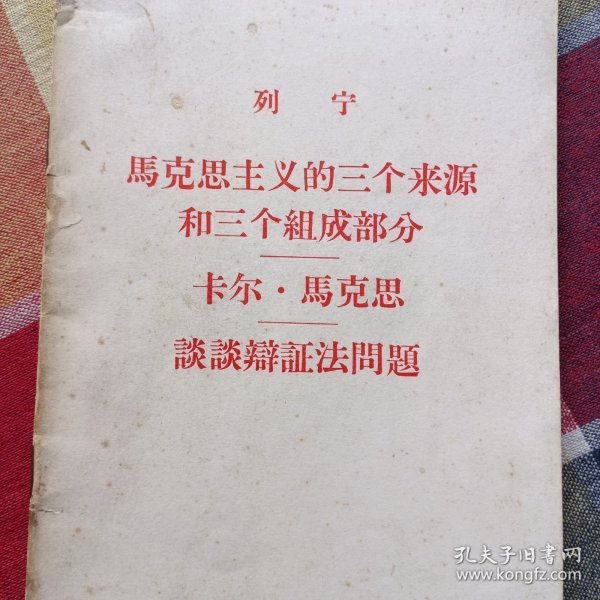 列 宁
馬克思主义的三个来源
和三个組成部分
卡尔·馬克思
談談辯証法問題
孔夫子旧书网
www.kongfz.com